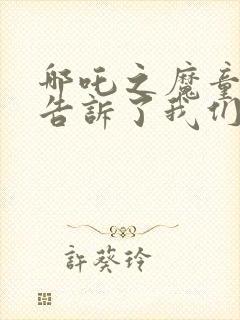 哪吒之魔童
告訴了我们
許葵玲